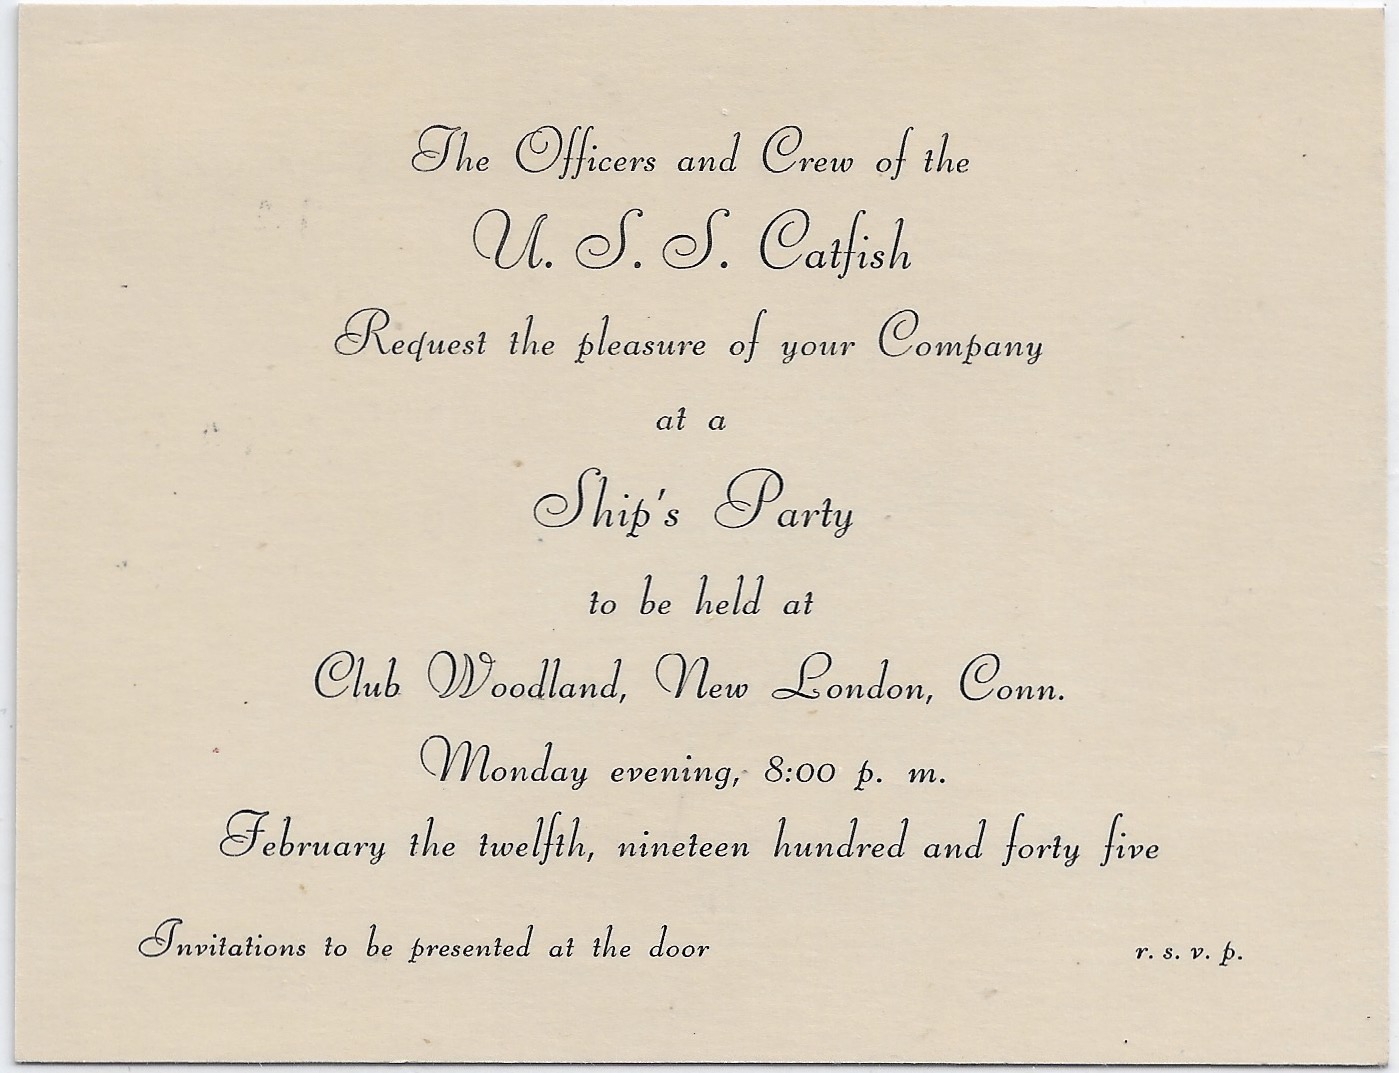 The Officers and Crew of the
U. S. S. Catfish
Request the pleasure of your Company
at a
Ship's Party
to be held at
Club Woodland, New London, Conn.
Monday evening, 8:00 p. m.
February the twelfth, nineteen hundred and forty five
Invitations to be presented at the door r. s. v. p.